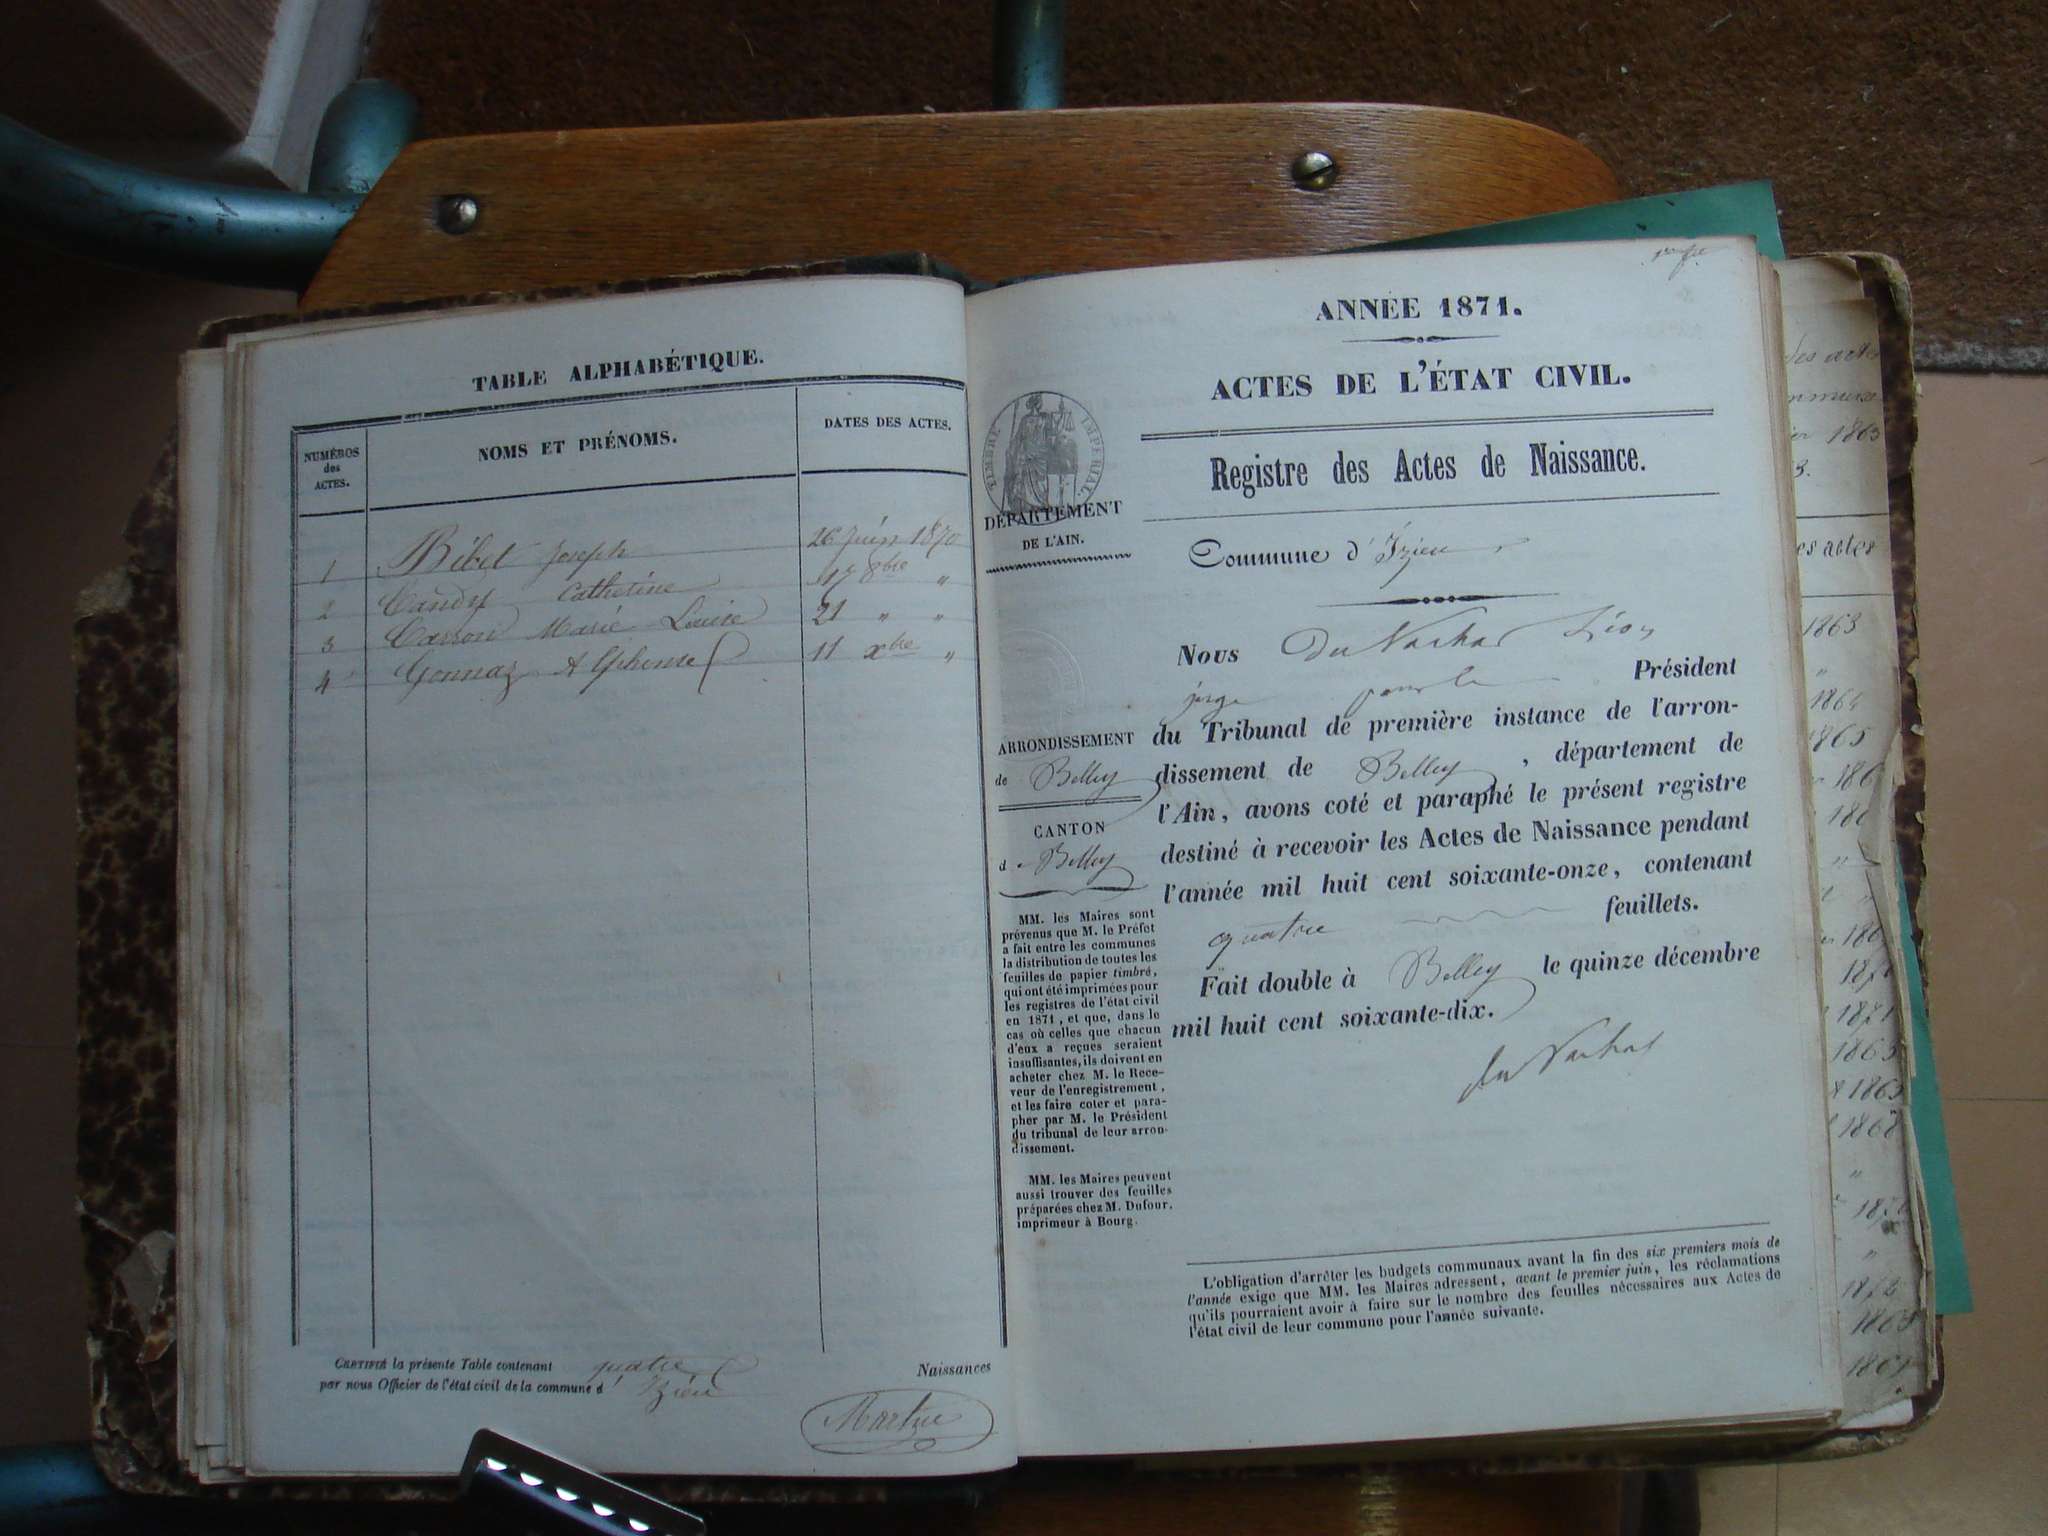 TABLE ALPHABÉTIQUE.
NUMÉROS des ACTES. NOMS ET PRÉNOMS. DATES DES ACTES.
1 Bibet Joseph 26 Juin 1870
2 Candy Catherine 17 8bre "
3 Carron Marie Louise 21 " "
4 Gonnaz Alphonse 11 xbre "
CERTIFIÉ la présente Table contenant quatre Naissances
par nous Officier de l'état civil de la commune d'Izieu
Martin
ANNÉE 1871.
ACTES DE L'ÉTAT CIVIL.
TIMBRE IMPÉRIAL.
DÉPARTEMENT
DE L'AIN.
Registre des Actes de Naissance.
Commune d'Izieu
ARRONDISSEMENT
de Belley
CANTON
de Belley
MM. les Maires sont
prévenus que M. le Préfet
a fait entre les communes
la distribution de toutes les
feuilles de papier timbré,
qui ont été imprimées pour
les registres de l'état civil
en 1871, et que, dans le
cas où celles que chacun
d'eux a reçues seraient
insuffisantes, ils doivent en
acheter chez M. le Rece-
veur de l'enregistrement,
et les faire coter et para-
pher par M. le Président
du tribunal de leur arron-
dissement.
MM. les Maires peuvent
aussi trouver des feuilles
préparées chez M. Dufour,
imprimeur à Bourg.
Nous Du Nachat Léon
juge pour le Président
du Tribunal de première instance de l'arron-
dissement de Belley, département de
l'Ain, avons coté et paraphé le présent registre
destiné à recevoir les Actes de Naissance pendant
l'année mil huit cent soixante-onze, contenant
quatre feuillets.
Fait double à Belley le quinze décembre
mil huit cent soixante-dix.
du Nachat
L'obligation d'arrêter les budgets communaux avant la fin des six premiers mois de
l'année exige que MM. les Maires adressent, avant le premier juin, les réclamations
qu'ils pourraient avoir à faire sur le nombre des feuilles nécessaires aux Actes de
l'état civil de leur commune pour l'année suivante.
des actes
1863
es actes
1863
1864
1865
1871
1865
1868